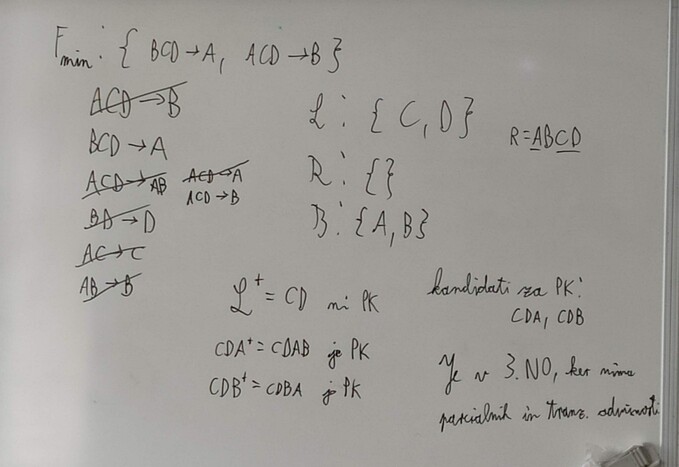 Fmin: { BCD→A, ACD→B }
ACD→B
BCD→A
ACD→AB ACD→A
ACD→B
BD→D
AC→C
AB→B
L: { C, D }
R: { }
B: { A, B }
R=ABCD
L⁺ = CD ni PK
CDA⁺ = CDAB je PK
CDB⁺ = CDBA je PK
kandidati za PK:
CDA, CDB
Je v 3.NO, ker nima
parcialnih in tranz. odvisnosti